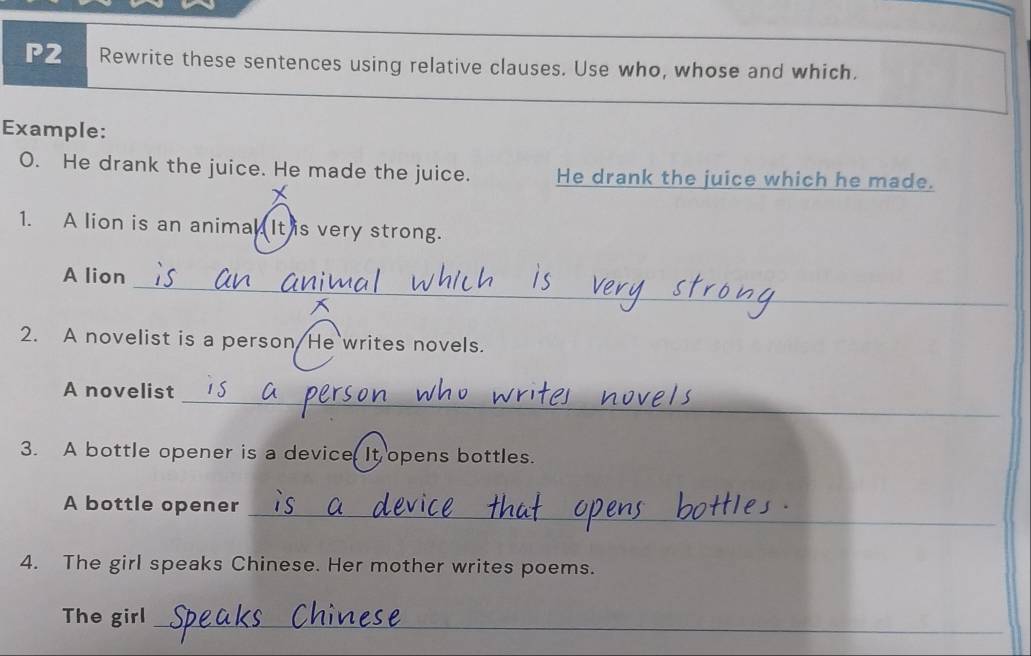 P2 Rewrite these sentences using relative clauses. Use who, whose and which.
Example:
O. He drank the juice. He made the juice. He drank the juice which he made.
x
1. A lion is an animal. It is very strong.
A lion is an animal which is very strong
x
2. A novelist is a person. He writes novels.
A novelist is a person who writes novels
3. A bottle opener is a device. It opens bottles.
A bottle opener is a device that opens bottles.
4. The girl speaks Chinese. Her mother writes poems.
The girl speaks Chinese